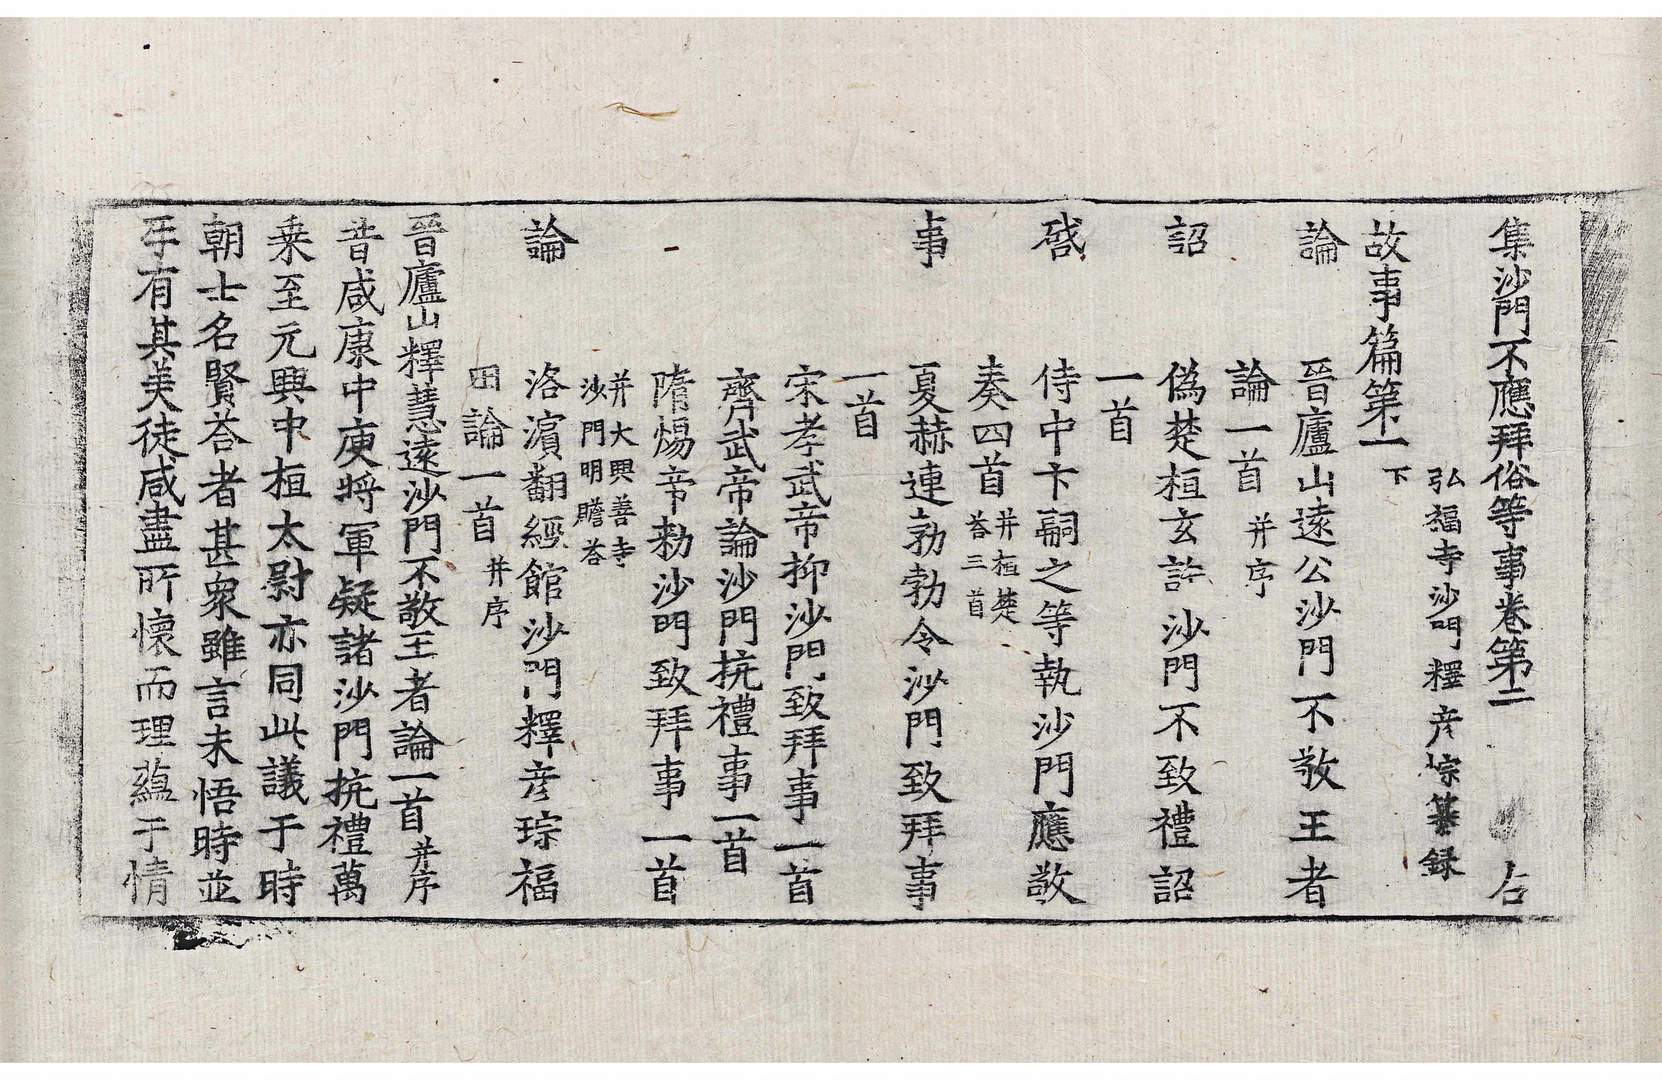 集沙門不應拜俗等事卷第二 右
弘福寺沙門釋彦悰纂録
故事篇第一下
論 晉廬山遠公沙門不敬王者
論一首并序
詔 偽楚桓玄許沙門不致禮詔
一首
啓 侍中卞嗣之等執沙門應敬
奏四首并桓楚荅三首
事 夏赫連勃勃令沙門致拜事
一首
宋孝武帝抑沙門致拜事一首
齊武帝論沙門抗禮事一首
隋煬帝敕沙門致拜事一首
并大興善寺沙門明贍荅
論 洛濱翻經館沙門釋彦琮福
田論一首并序
晉廬山釋慧遠沙門不敬王者論一首并序
昔咸康中庾將軍疑諸沙門抗禮萬
乗至元興中桓太尉亦同此議于時
朝士名賢荅者甚衆雖言未悟時並
乎有其美徒咸盡所懷而理蘊于情